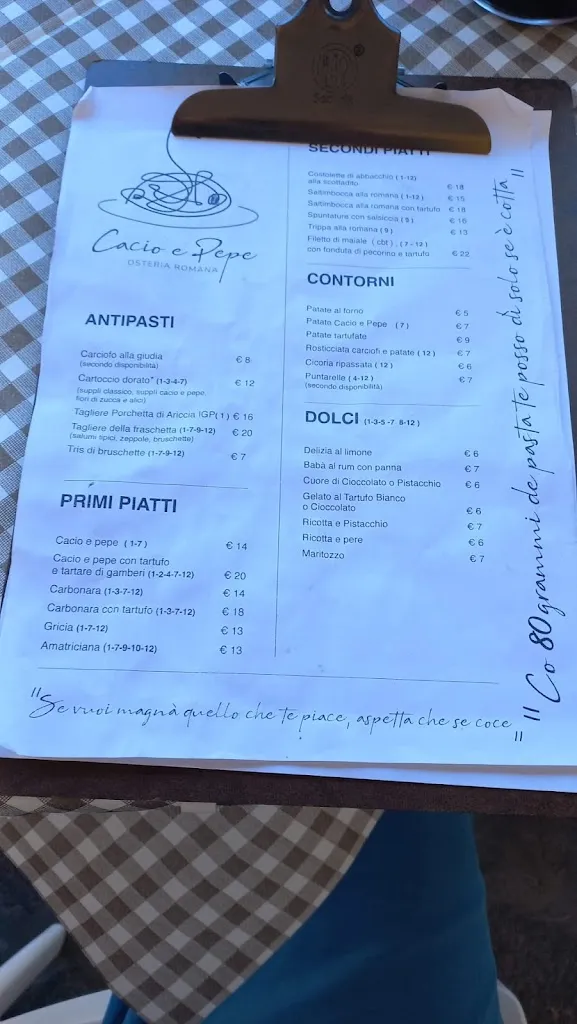 Cacio e Pepe
OSTERIA ROMANA
ANTIPASTI
Carciofo alla giudia € 8
(secondo disponibilità)
Cartoccio dorato* (1-3-4-7) € 12
(supplì classico, supplì cacio e pepe,
fiori di zucca e alici)
Tagliere Porchetta di Ariccia IGP(1) € 16
Tagliere della fraschetta (1-7-9-12) € 20
(salumi spici, zeppole, bruschette)
Tris di bruschette (1-7-9-12) € 7
PRIMI PIATTI
Cacio e pepe (1-7) € 14
Cacio e pepe con tartufo
e tartare di gamberi (1-2-4-7-12) € 20
Carbonara (1-3-7-12) € 14
Carbonara con tartufo (1-3-7-12) € 18
Gricia (1-7-12) € 13
Amatriciana (1-7-9-10-12) € 13
SECONDI PIATTI
Costolette di abbacchio (1-12)
alla scottadito € 18
Saltimbocca alla romana (1-12) € 15
Saltimbocca alla romana con tartufo € 18
Spuntature con salsiccia (9) € 16
Trippa alla romana (9) € 13
Filetto di maiale (cbt), (7-12)
con fonduta di pecorino e tartufo € 22
CONTORNI
Patate al forno € 5
Patate Cacio e Pepe (7) € 7
Patate tartufate € 9
Rosticciata carciofi e patate (12) € 7
Cicoria ripassata (12) € 6
Puntarelle (4-12) € 7
(secondo disponibilità)
DOLCI (1-3-5-7 8-12)
Delizia al limone € 6
Babà al rum con panna € 7
Cuore di Cioccolato o Pistacchio € 6
Gelato al Tartufo Bianco
o Cioccolato € 6
Ricotta e Pistacchio € 7
Ricotta e pere € 6
Maritozzo € 7
"Co 80grammi de pasta te posso dì solo se è cotta"
"Se vuoi magnà quello che te piace, aspetta che se coce"